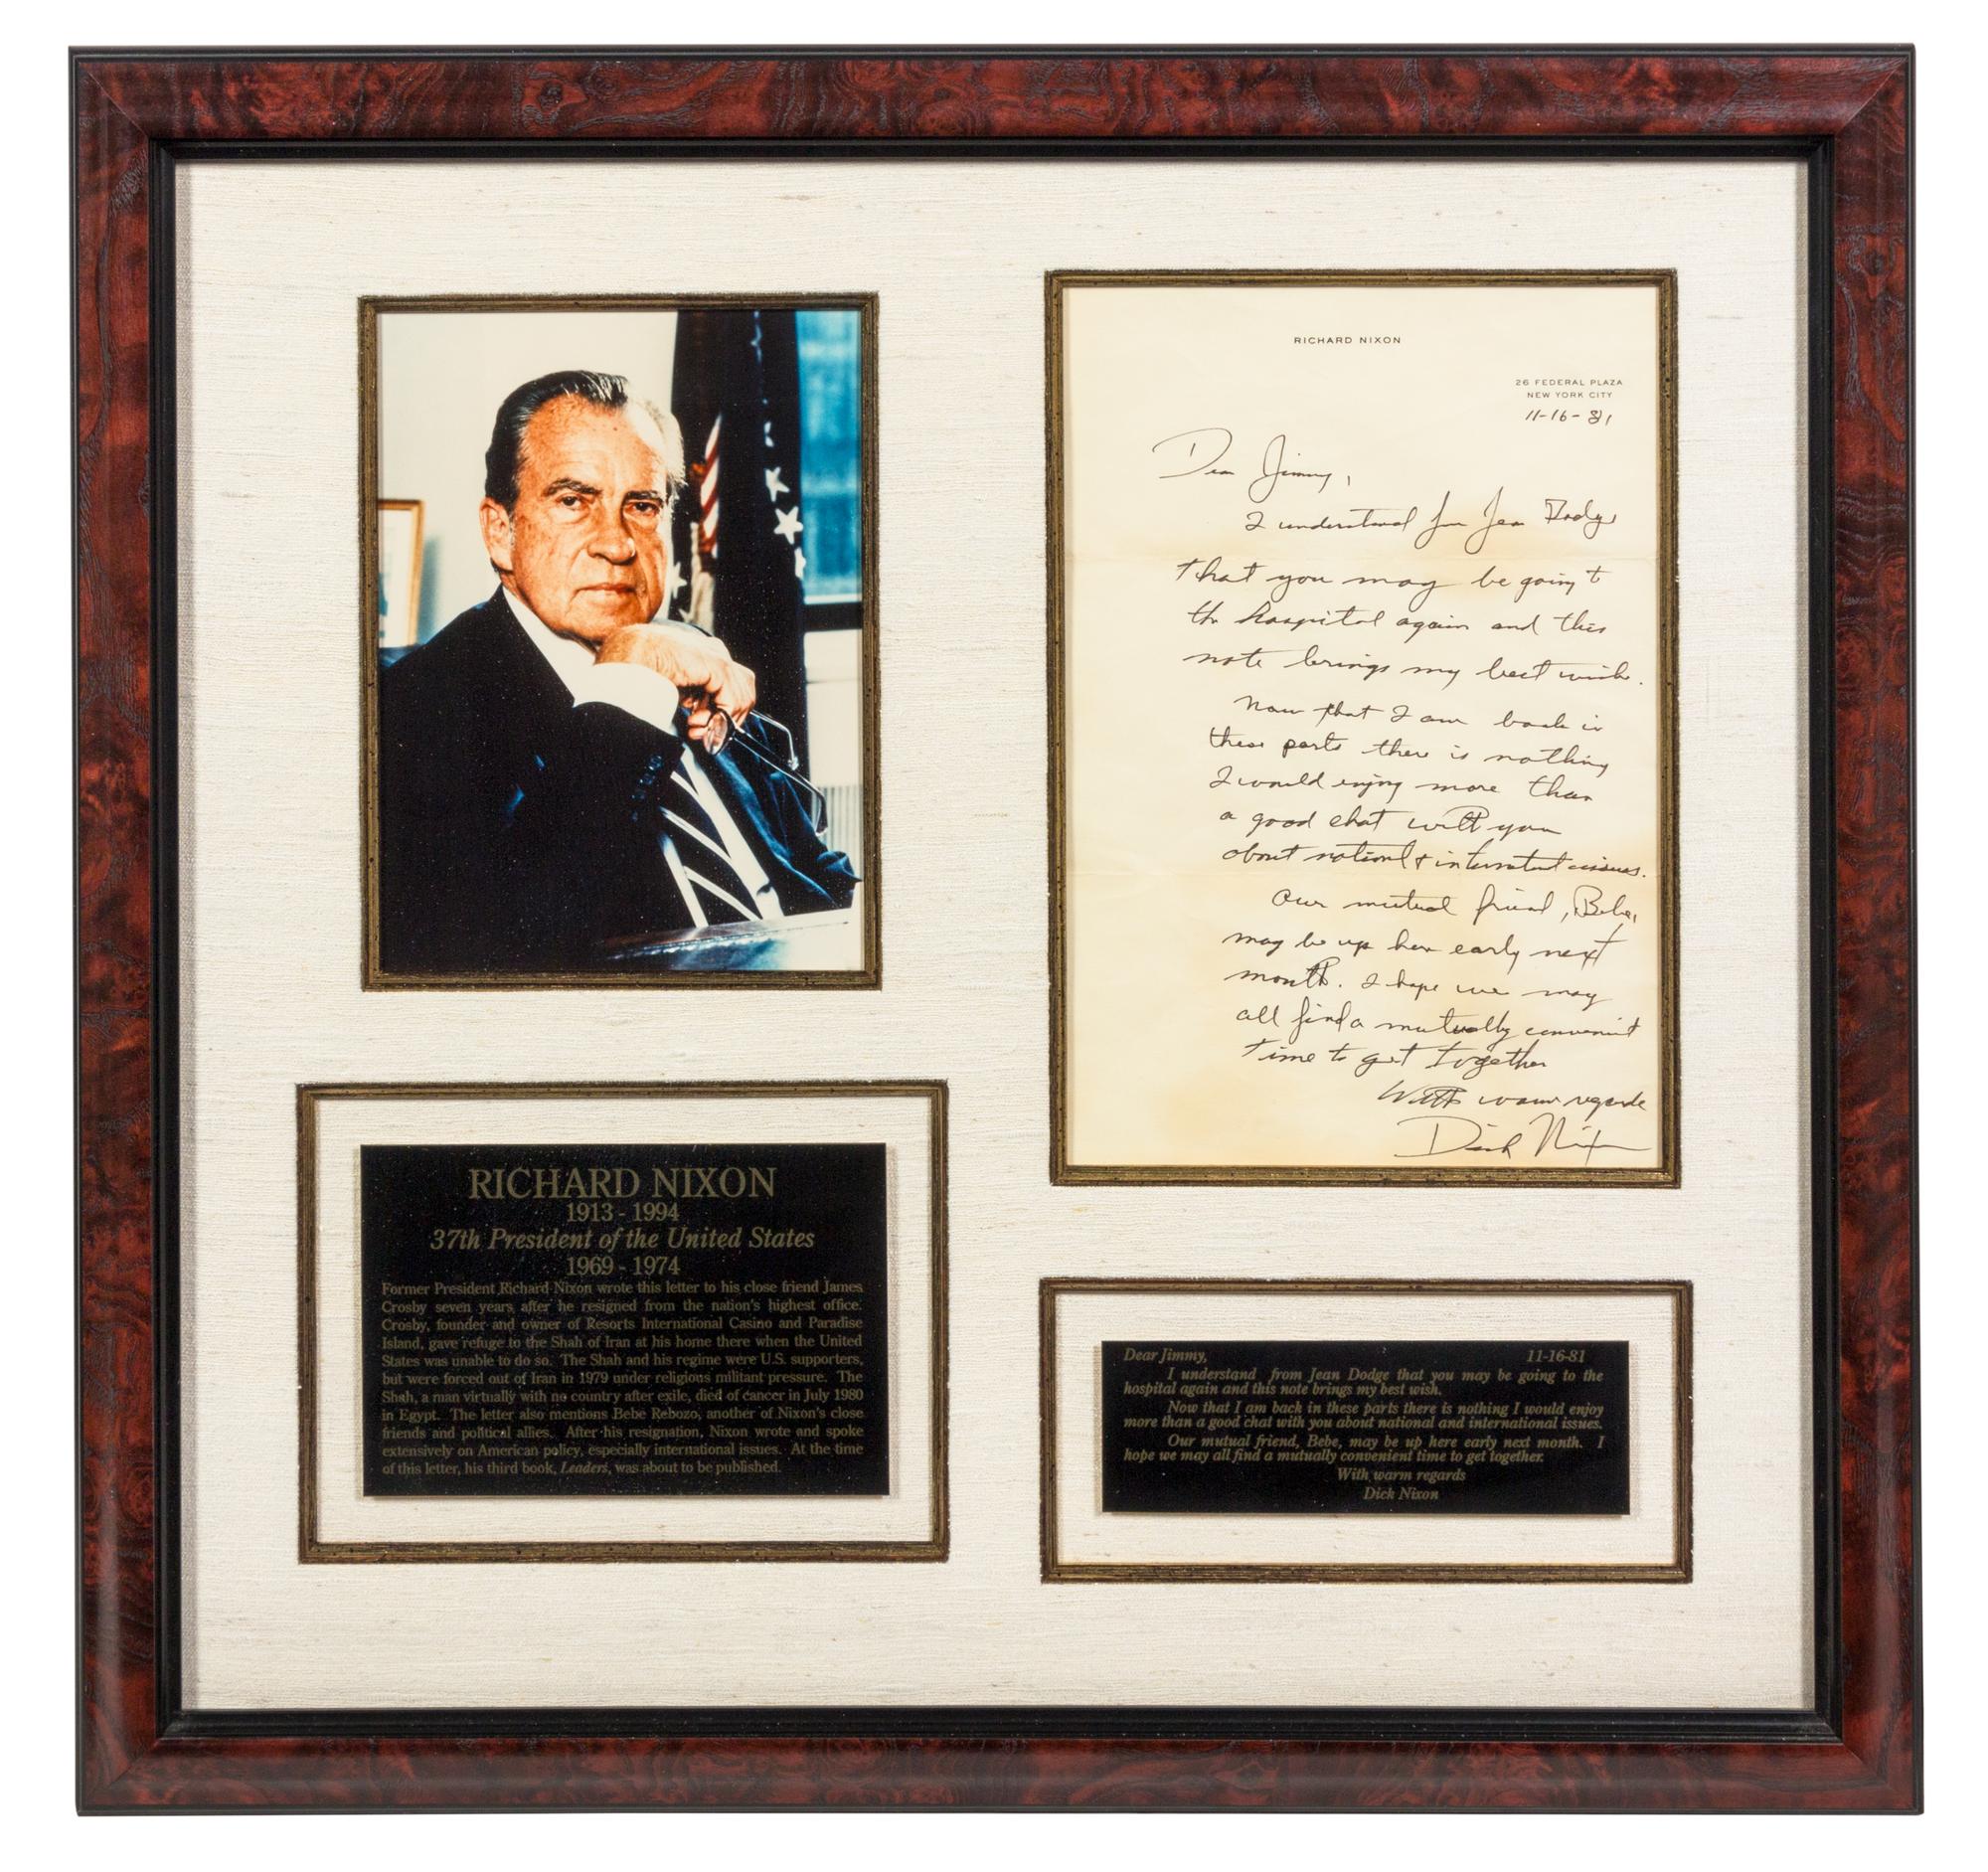 RICHARD NIXON
26 FEDERAL PLAZA
NEW YORK CITY
11-16-81
Dear Jimmy,
I understand from Jean Dodge
that you may be going to
the hospital again and this
note brings my best wish.
Now that I am back in
these parts there is nothing
I would enjoy more than
a good chat with you
about national & international issues.
Our mutual friend, Bebe,
may be up here early next
month. I hope we may
all find a mutually convenient
time to get together
With warm regards
Dick Nixon
RICHARD NIXON
1913 - 1994
37th President of the United States
1969 - 1974
Former President Richard Nixon wrote this letter to his close friend James
Crosby seven years after he resigned from the nation's highest office.
Crosby, founder and owner of Resorts International Casino and Paradise
Island, gave refuge to the Shah of Iran at his home there when the United
States was unable to do so. The Shah and his regime were U.S. supporters,
but were forced out of Iran in 1979 under religious militant pressure. The
Shah, a man virtually with no country after exile, died of cancer in July 1980
in Egypt. The letter also mentions Bebe Rebozo, another of Nixon's close
friends and political allies. After his resignation, Nixon wrote and spoke
extensively on American policy, especially international issues. At the time
of this letter, his third book, Leaders, was about to be published.
Dear Jimmy, 11-16-81
I understand from Jean Dodge that you may be going to the
hospital again and this note brings my best wish.
Now that I am back in these parts there is nothing I would enjoy
more than a good chat with you about national and international issues.
Our mutual friend, Bebe, may be up here early next month. I
hope we may all find a mutually convenient time to get together.
With warm regards
Dick Nixon